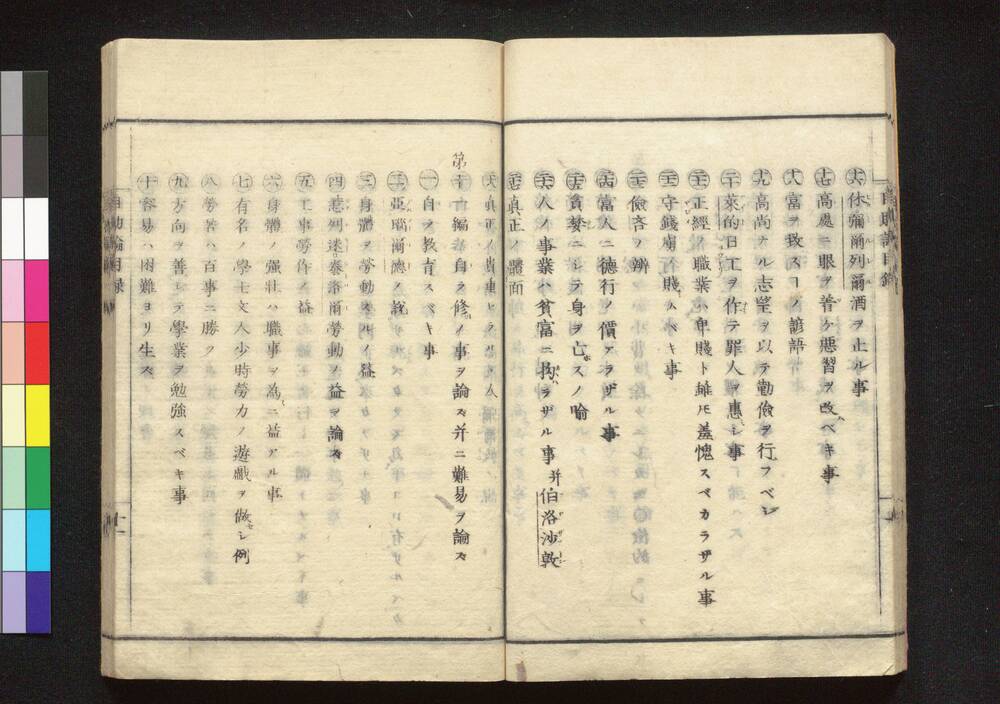 自助論目錄
㊅ 休彌爾列爾酒ヲ止ル事
㊆ 高處ニ眼ヲ着ケ悪習ヲ改ベキ事
富ヲ致スノ諺語
高尚ナル志望ヲ以テ勤儉ヲ行フベシ
萊的日工ヲ作テ罪人ヲ惠シ事
正經ノ職業ハ卑賤ト雖𪜈羞愧スベカラザル事
守錢虜ノ賤ムベキ事
儉吝ノ辨
富人ニ德行ノ價アラザル事
貪婪ニシテ身ヲ亡スノ喻
人ノ事業ハ貧富ニ拘ラザル事并伯洛沙敦
真正ノ體面
第十一編 自ラ修ルノ事ヲ論ズ并ニ難易ヲ論ズ
㊀ 自ラ教育スベキ事
㊁ 亞耨爾德ノ說
㊂ 身體ヲ勞動スルノ益
㊃ 悲列迷泰洛爾勞動ノ益ヲ論ズ
㊄ 工事勞作ノ益
㊅ 身體ノ强壯ハ職事ヲ為ニ益アル事
㊆ 有名ノ學士文人少時勞力ノ遊戲ヲ做シ例
㊇ 勞苦ハ百事ニ勝ツ
㊈ 方向ヲ善シテ學業ヲ勉強スベキ事
㊉ 容易ハ困難ヨリ生ズ
自助論目錄
十一